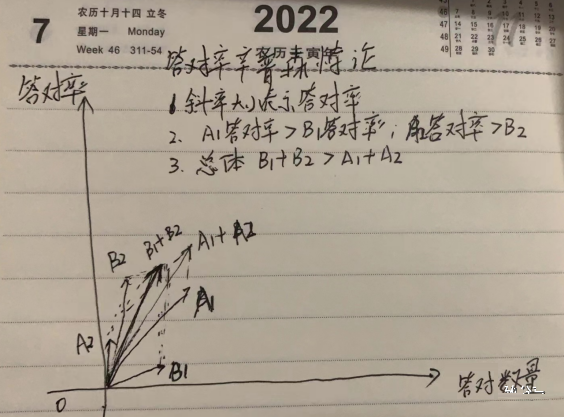 7
农历十月十四 立冬
星期一 Monday
Week 46 311-54
2022
农历壬寅年
答对率辛普森悖论
1. 斜率大小表示答对率
2. A1答对率>B1答对率; A2答对率>B2
3. 总体 B1+B2 > A1+A2
答对率
B2
B1+B2
A1+A2
A1
A2
B1
O
答对数量